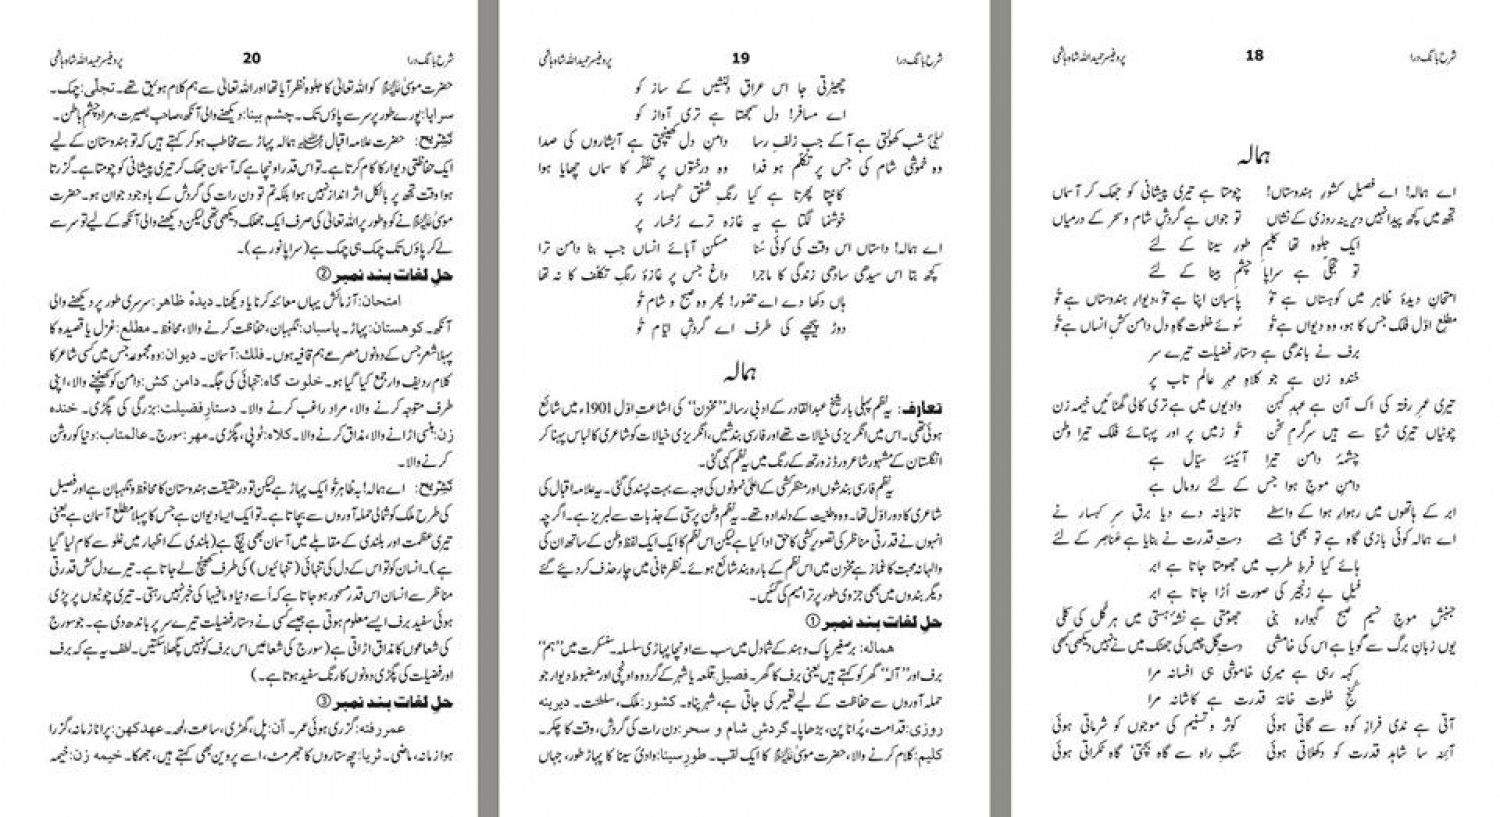 شرح بانگ درا 18 پروفیسر حمید اللہ شاہ ہاشمی
ہمالہ
اے ہمالہ! اے فصیلِ کشورِ ہندوستاں! چومتا ہے تیری پیشانی کو جھک کر آسماں
تجھ میں کچھ پیدا نہیں دیرینہ روزی کے نشاں تو جواں ہے گردشِ شام و سحر کے درمیاں
ایک جلوہ تھا کلیمِ طورِ سینا کے لئے
تو تجلّی ہے سراپا چشمِ بینا کے لئے
امتحانِ دیدۂ ظاہر میں کوہستاں ہے تُو پاسباں اپنا ہے تُو، دیوارِ ہندوستاں ہے تُو
مطلعِ اوّل فلک جس کا ہو، وہ دیواں ہے تُو سُوئے خلوت گاہِ دل دامن کشِ انساں ہے تُو
برف نے باندھی ہے دستارِ فضیلت تیرے سر
خندہ زن ہے جو کلاہِ مہرِ عالم تاب پر
تیری عمرِ رفتہ کی اک آن ہے عہدِ کہن وادیوں میں ہے تری کالی گھٹائیں خیمہ زن
چوٹیاں تیری ثریّا سے ہیں سرگرمِ سخن تُو زمیں پر اور پہنائے فلک تیرا وطن
چشمۂ دامن ترا آئینۂ سیّال ہے
دامنِ موجِ ہوا جس کے لئے رومال ہے
ابر کے ہاتھوں میں رہوارِ ہوا کے واسطے تازیانہ دے دیا برقِ سرِ کہسار نے
اے ہمالہ کوئی بازی گاہ ہے تو بھی، جسے دستِ قدرت نے بنایا ہے عناصر کے لئے
ہائے کیا فرطِ طرب میں جھومتا جاتا ہے ابر
فیلِ بے زنجیر کی صورت اُڑا جاتا ہے ابر
جنبشِ موجِ نسیمِ صبح گہوارہ بنی جھومتی ہے نشۂ ہستی میں ہر گُل کی کلی
یوں زبانِ برگ سے گویا ہے اس کی خامشی دستِ گل چیں کی جھٹک میں نے نہیں دیکھی کبھی
کہہ رہی ہے میری خاموشی ہی افسانہ مرا
کنجِ خلوت خانۂ قدرت ہے کاشانہ مرا
آتی ہے ندی فرازِ کوہ سے گاتی ہوئی کوثر و تسنیم کی موجوں کو شرماتی ہوئی
آئنہ سا شاہدِ قدرت کو دکھلاتی ہوئی سنگِ راہ سے گاہ بچتی، گاہ ٹکراتی ہوئی
شرح بانگ درا 19 پروفیسر حمید اللہ شاہ ہاشمی
چھیڑتی جا اس عراقِ دلنشیں کے ساز کو
اے مسافر! دل سمجھتا ہے تری آواز کو
لیلیٔ شب کھولتی ہے آ کے جب زلفِ رسا دامنِ دل کھینچتی ہے آبشاروں کی صدا
وہ خموشی شام کی جس پر تکلّم ہو فدا وہ درختوں پر تفکّر کا سماں چھایا ہوا
کانپتا پھرتا ہے کیا رنگِ شفق کُہسار پر
خوشنما لگتا ہے یہ غازہ ترے رُخسار پر
اے ہمالہ! داستاں اس وقت کی کوئی سُنا مسکنِ آبائے انساں جب بنا دامن ترا
کچھ بتا اس سیدھی سادھی زندگی کا ماجرا داغ جس پر غازۂ رنگِ تکلّف کا نہ تھا
ہاں دکھا دے اے تصور! پھر وہ صبح و شام تُو
دوڑ پیچھے کی طرف اے گردشِ ایّام تُو
ہمالہ
تعارف: یہ نظم پہلی بار شیخ عبدالقادر کے ادبی رسالہ ”مخزن“ کی اشاعت اوّل 1901ء میں شائع
ہوئی تھی۔ اس میں انگریزی خیالات تھے اور فارسی بندشیں، انگریزی خیالات کو شاعری کا لباس پہنا کر
انگلستان کے مشہور شاعر ورڈزورتھ کے رنگ میں یہ نظم کہی گئی۔
یہ نظم فارسی بندشوں اور منظر کشی کے اعلیٰ نمونوں کی وجہ سے بہت پسند کی گئی۔ یہ علامہ اقبال کی
شاعری کا دور اوّل تھا۔ وہ وطنیت کے دلدادہ تھے۔ یہ نظم وطن پرستی کے جذبات سے لبریز ہے۔ اگرچہ
انہوں نے قدرتی مناظر کی تصویر کشی کا حق ادا کیا ہے لیکن اس نظم کا ایک ایک لفظ وطن کے ساتھ ان کی
والہانہ محبت کا غماز ہے مخزن میں اس نظم کے بارہ بند شائع ہوئے۔ نظر ثانی میں چار حذف کر دیئے گئے
دیگر بندوں میں بھی جزوی طور پر ترامیم کی گئیں۔
حل لغات بند نمبر ①
ہمالہ: برصغیر پاک و ہند کے شمال میں سب سے اونچا پہاڑی سلسلہ۔ سنسکرت میں ”ہم“
برف اور ”آلہ“ گھر کو کہتے ہیں یعنی برف کا گھر۔ فصیل: قلعہ یا شہر کے گرد وہ اونچی اور مضبوط دیوار جو
حملہ آوروں سے حفاظت کے لیے تعمیر کی جاتی ہے، شہر پناہ۔ کشور: ملک، سلطنت۔ دیرینہ
روزی: قدامت، پُرانا پن، بڑھاپا۔ گردشِ شام و سحر: دن رات کی گردش، وقت کا چکر۔
کلیم: کلام کرنے والا، حضرت موسیٰ علیہ السلام کا ایک لقب۔ طورِ سینا: وادئ سینا کا پہاڑ طور، جہاں
شرح بانگ درا 20 پروفیسر حمید اللہ شاہ ہاشمی
حضرت موسیٰ علیہ السلام کو اللہ تعالیٰ کا جلوہ نظر آیا تھا اور اللہ تعالیٰ سے ہم کلام ہوئے تھے۔ تجلّی: چمک۔
سراپا: پورے طور پر سر سے پاؤں تک۔ چشم بینا: دیکھنے والی آنکھ، صاحب بصیرت، مراد چشم باطن۔
تشریح: حضرت علامہ اقبال ہمالہ پہاڑ سے مخاطب ہو کر کہتے ہیں کہ تو ہندوستان کے لیے
ایک حفاظتی دیوار کا کام کرتا ہے۔ تو اس قدر اونچا ہے کہ آسمان جھک کر تیری پیشانی کو چومتا ہے۔ گزرتا
ہوا وقت تجھ پر بالکل اثر انداز نہیں ہوا بلکہ تو دن رات کی گردش کے باوجود جوان ہے۔ حضرت
موسیٰ علیہ السلام نے کوہِ طور پر اللہ تعالیٰ کی صرف ایک جھلک دیکھی تھی لیکن دیکھنے والی آنکھ کے لیے تو سر سے
لے کر پاؤں تک چمک ہی چمک ہے (سراپا نور ہے)۔
حل لغات بند نمبر ②
امتحان: آزمائش یہاں معائنہ کرنا یا دیکھنا۔ دیدۂ ظاہر: سرسری طور پر دیکھنے والی
آنکھ۔ کوہستان: پہاڑ۔ پاسباں: نگہبان، حفاظت کرنے والا، محافظ۔ مطلع: غزل یا قصیدہ کا
پہلا شعر جس کے دونوں مصرعے ہم قافیہ ہوں۔ فلک: آسمان۔ دیوان: وہ مجموعہ جس میں کسی شاعر کا
کلام ردیف وار جمع کیا گیا ہو۔ خلوت گاہ: تنہائی کی جگہ۔ دامن کش: دامن کو کھینچنے والا، اپنی
طرف متوجہ کرنے والا، مراد راغب کرنے والا۔ دستارِ فضیلت: بزرگی کی پگڑی۔ خندہ
زن: ہنسی اڑانے والا، مذاق کرنے والا۔ کلاہ: ٹوپی، پگڑی۔ مہر: سورج۔ عالمتاب: دنیا کو روشن
کرنے والا۔
تشریح: اے ہمالہ! بہ ظاہر تُو ایک پہاڑ ہے لیکن تو درحقیقت ہندوستان کا محافظ و نگہبان ہے اور فصیل
کی طرح ملک کو شمالی حملہ آوروں سے بچاتا ہے۔ تو ایک ایسا دیوان ہے جس کا پہلا مطلع آسمان ہے یعنی
تیری عظمت اور بلندی کے مقابلے میں آسمان بھی ہیچ ہے (بلندی کے اظہار میں غلو سے کام لیا گیا
ہے)۔ انسان کو تو اس کے دل کی تنہائی (تنہائیوں) کی طرف کھینچ لے جاتا ہے۔ تیرے دل کش قدرتی
مناظر سے انسان اس قدر مسحور ہو جاتا ہے کہ اُسے دنیا و مافیہا کی خبر نہیں رہتی۔ تیری چوٹیوں پر پڑی
ہوئی سفید برف ایسے معلوم ہوتی ہے جیسے کسی نے دستار فضیلت تیرے سر پر باندھ دی ہے۔ جو سورج
کی شعاعوں کا مذاق اڑاتی ہے (سورج کی شعاعیں اس برف کو نہیں پگھلا سکتیں۔ لطف یہ ہے کہ برف
اور فضیات کی پگڑی دونوں کا رنگ سفید ہوتا ہے۔)
حل لغات بند نمبر ③
عمر رفتہ: گزری ہوئی عمر۔ آن: پل، گھڑی، ساعت، لمحہ۔ عہد کہن: پرانا زمانہ، گزرا
ہوا زمانہ، ماضی۔ ثریا: چھ ستاروں کا جھرمٹ، اسے پروین بھی کہتے ہیں، جھمکا۔ خیمہ زن: خیمہ